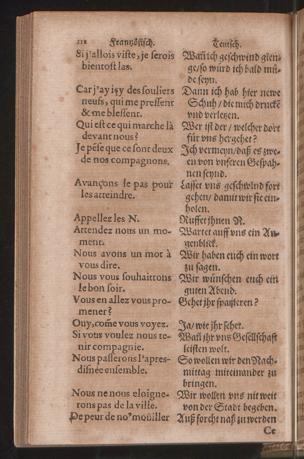 112 Frantzösisch. Teutsch.
Si j'allois viste, je serois
bientost las.
Wañ ich geschwind gien-
ge/ so würd ich bald mü-
de seyn.
Car j'ay icy des souliers
neufs, qui me pressent
& me blessent.
Dann ich hab hier newe
Schuh/ die mich druckē
und verletzen.
Qui est ce qui marche là
devant nous?
Wer ist der/ welcher dort
für uns hergehet?
Je pēse que ce sont deux
de nos compagnons.
Ich vermeyn/ daß es zwe-
en von unseren Gespah-
nen seynd.
Avançons le pas pour
les atteindre.
Lasset uns geschwind fort
gehen/ damit wir sie ein-
holen.
Appellez les N.
Ruffet ihnen N.
Attendez nous un mo-
ment.
Wartet auff uns ein Au-
genblick.
Nous avons un mot à
vous dire.
Wir haben euch ein wort
zu sagen.
Nous vous souhaittons
le bon soir.
Wir wünschen euch ein
guten Abend.
Vous en allez vous pro-
mener?
Gehet ihr spatzieren?
Ouy, cōme vous voyez.
Ja/ wie ihr sehet.
Si vous voulez nous te-
nir compagnie.
Wañ ihr uns Gesellschaft
leisten wolt.
Nous passerons l'apres-
disnée ensemble.
So wollen wir den Nach-
mittag miteinander zu
bringen.
Nous ne nous eloigne-
rons pas de la ville.
Wir wollen uns nit weit
von der Stadt begeben.
De peur de no⁹ moüiller
Auß forcht naß zu werden
Cc